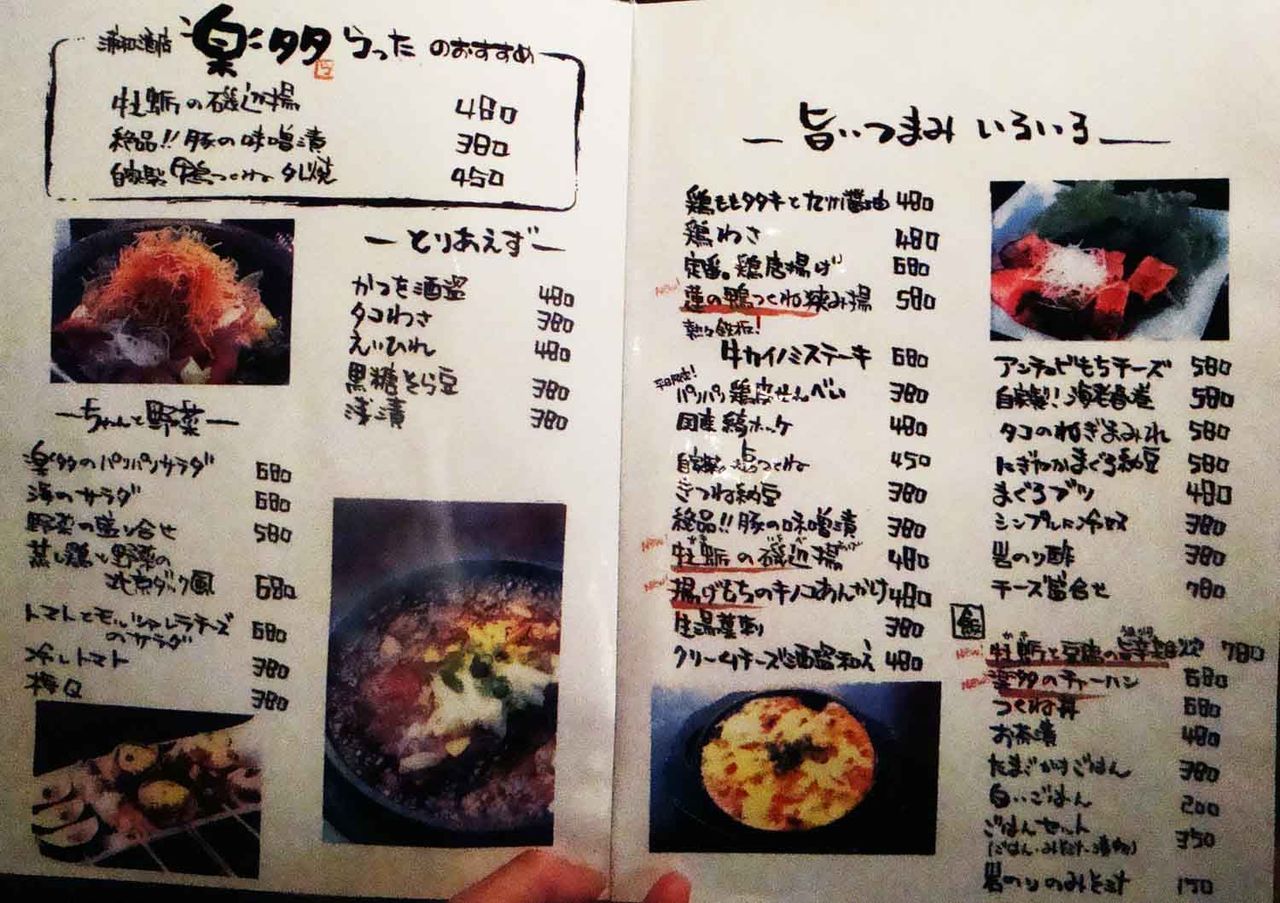 楽多 らった のおすすめ
牡蛎の磯辺揚 480
絶品!!豚の味噌漬 380
自家製鴨つくねタレ焼 450
とりあえず
かつを酒盗 480
タコわさ 380
えいひれ 480
黒糖そら豆 380
浅漬 380
ちゃんと野菜
楽多のパリパリサラダ 680
海のサラダ 680
野菜の盛り合せ 580
蒸し鶏と野菜の
北京ダック風 680
トマトとモッツァレラチーズ
のサラダ 680
冷しトマト 380
梅Q 380
旨いつまみ いろいろ
鶏ももタタキとたたき醤油 480
鶏わさ 480
定番。鶏唐揚げ 680
New! 蓮の鴨つくね挟み揚 580
熱々鉄板!
牛カイノミステーキ 680
平日限定!
パリパリ鶏皮せんべい 380
国産縞ホッケ 480
自家製鶏つくね 450
きつね納豆 380
絶品!!豚の味噌漬 380
New! 牡蛎の磯辺揚 480
New! 揚げもちのキノコあんかけ 480
生湯葉刺 380
クリームチーズ酒盗和え 480
アンチョビもちチーズ 580
自家製!海老春巻 580
タコのねぎまみれ 580
にぎやかまぐろ納豆 580
まぐろブツ 480
シンプルに冷奴 380
岩のり酢 380
チーズ盛合せ 780
飯
New! 牡蛎と豆腐の旨辛雑炊 780
New! 楽多のチャーハン 680
つくね丼 680
お茶漬 480
たまごかけごはん 380
白いごはん 200
ごはんセット 350
(ごはん・みそ汁・漬物)
岩のりのみそ汁 150